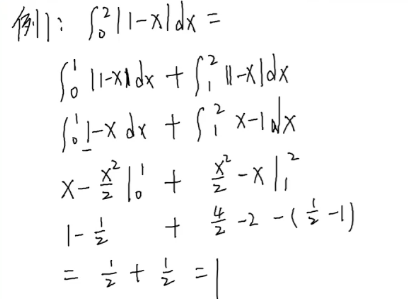 例1: ∫₀² |1-x| dx =
∫₀¹ |1-x| dx + ∫₁² |1-x| dx
∫₀¹ 1-x dx + ∫₁² x-1 dx
x - x²/2 |₀¹ + x²/2 - x |₁²
1 - 1/2 + 4/2 - 2 - (1/2 - 1)
= 1/2 + 1/2 = 1